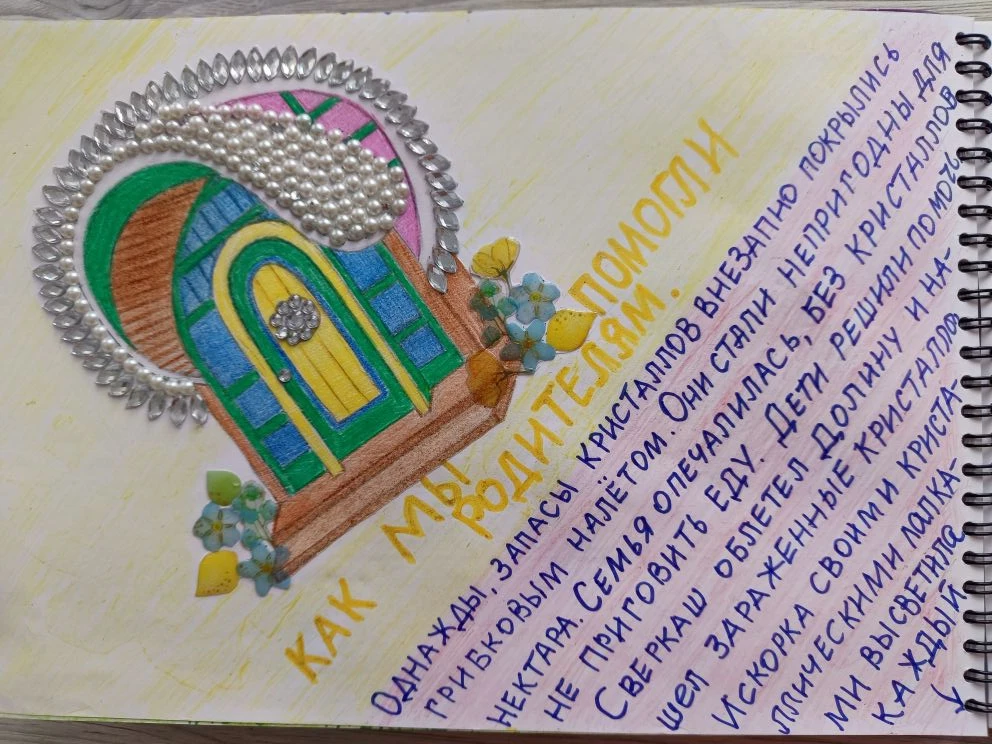 КАК МЫ ПОМОГЛИ
РОДИТЕЛЯМ.
ОДНАЖДЫ, ЗАПАСЫ КРИСТАЛЛОВ ВНЕЗАПНО ПОКРЫЛИСЬ
ГРИБКОВЫМ НАЛЁТОМ. ОНИ СТАЛИ НЕПРИГОДНЫ ДЛЯ
НЕКТАРА. СЕМЬЯ ОПЕЧАЛИЛАСЬ, БЕЗ КРИСТАЛЛОВ
НЕ ПРИГОВИТЬ ЕДУ. ДЕТИ РЕШИЛИ ПОМОЧЬ.
СВЕРКАШ ОБЛЕТЕЛ ДОЛИНУ И НА-
ШЕЛ ЗАРАЖЕННЫЕ КРИСТАЛЛЫ.
ИСКОРКА СВОИМИ КРИСТА-
ЛЛИЧЕСКИМИ ЛАПКА-
МИ ВЫСВЕТИЛА
КАЖДЫЙ